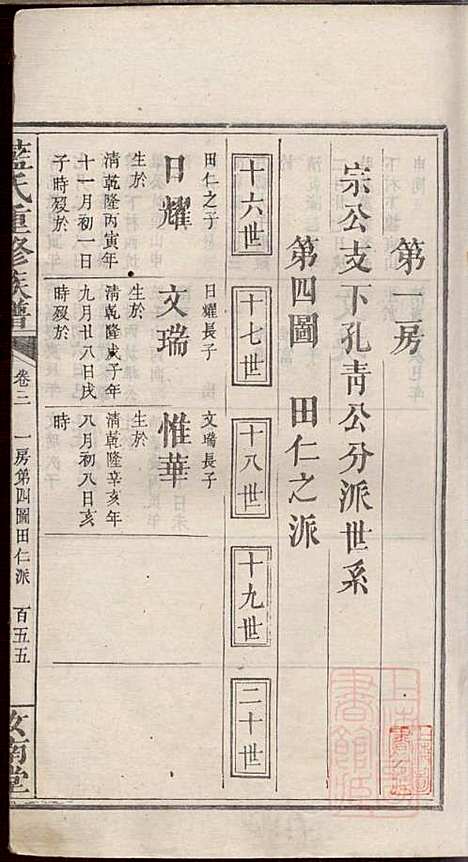 第一房
宗公支下孔靑公分派世系
第四圖 田仁之派
十六世
十七世
十八世
十九世
二十世
田仁之子
日耀
生於
清乾隆丙寅年
十一月初一日
子時歿於
日耀長子
文瑞
生於
清乾隆戊子年
九月廿八日戌
時歿於
文瑞長子
惟華
生於
清乾隆辛亥年
八月初八日亥
時
藍氏重修族譜
卷二
一房第四圖田仁派
百五五
汝南堂